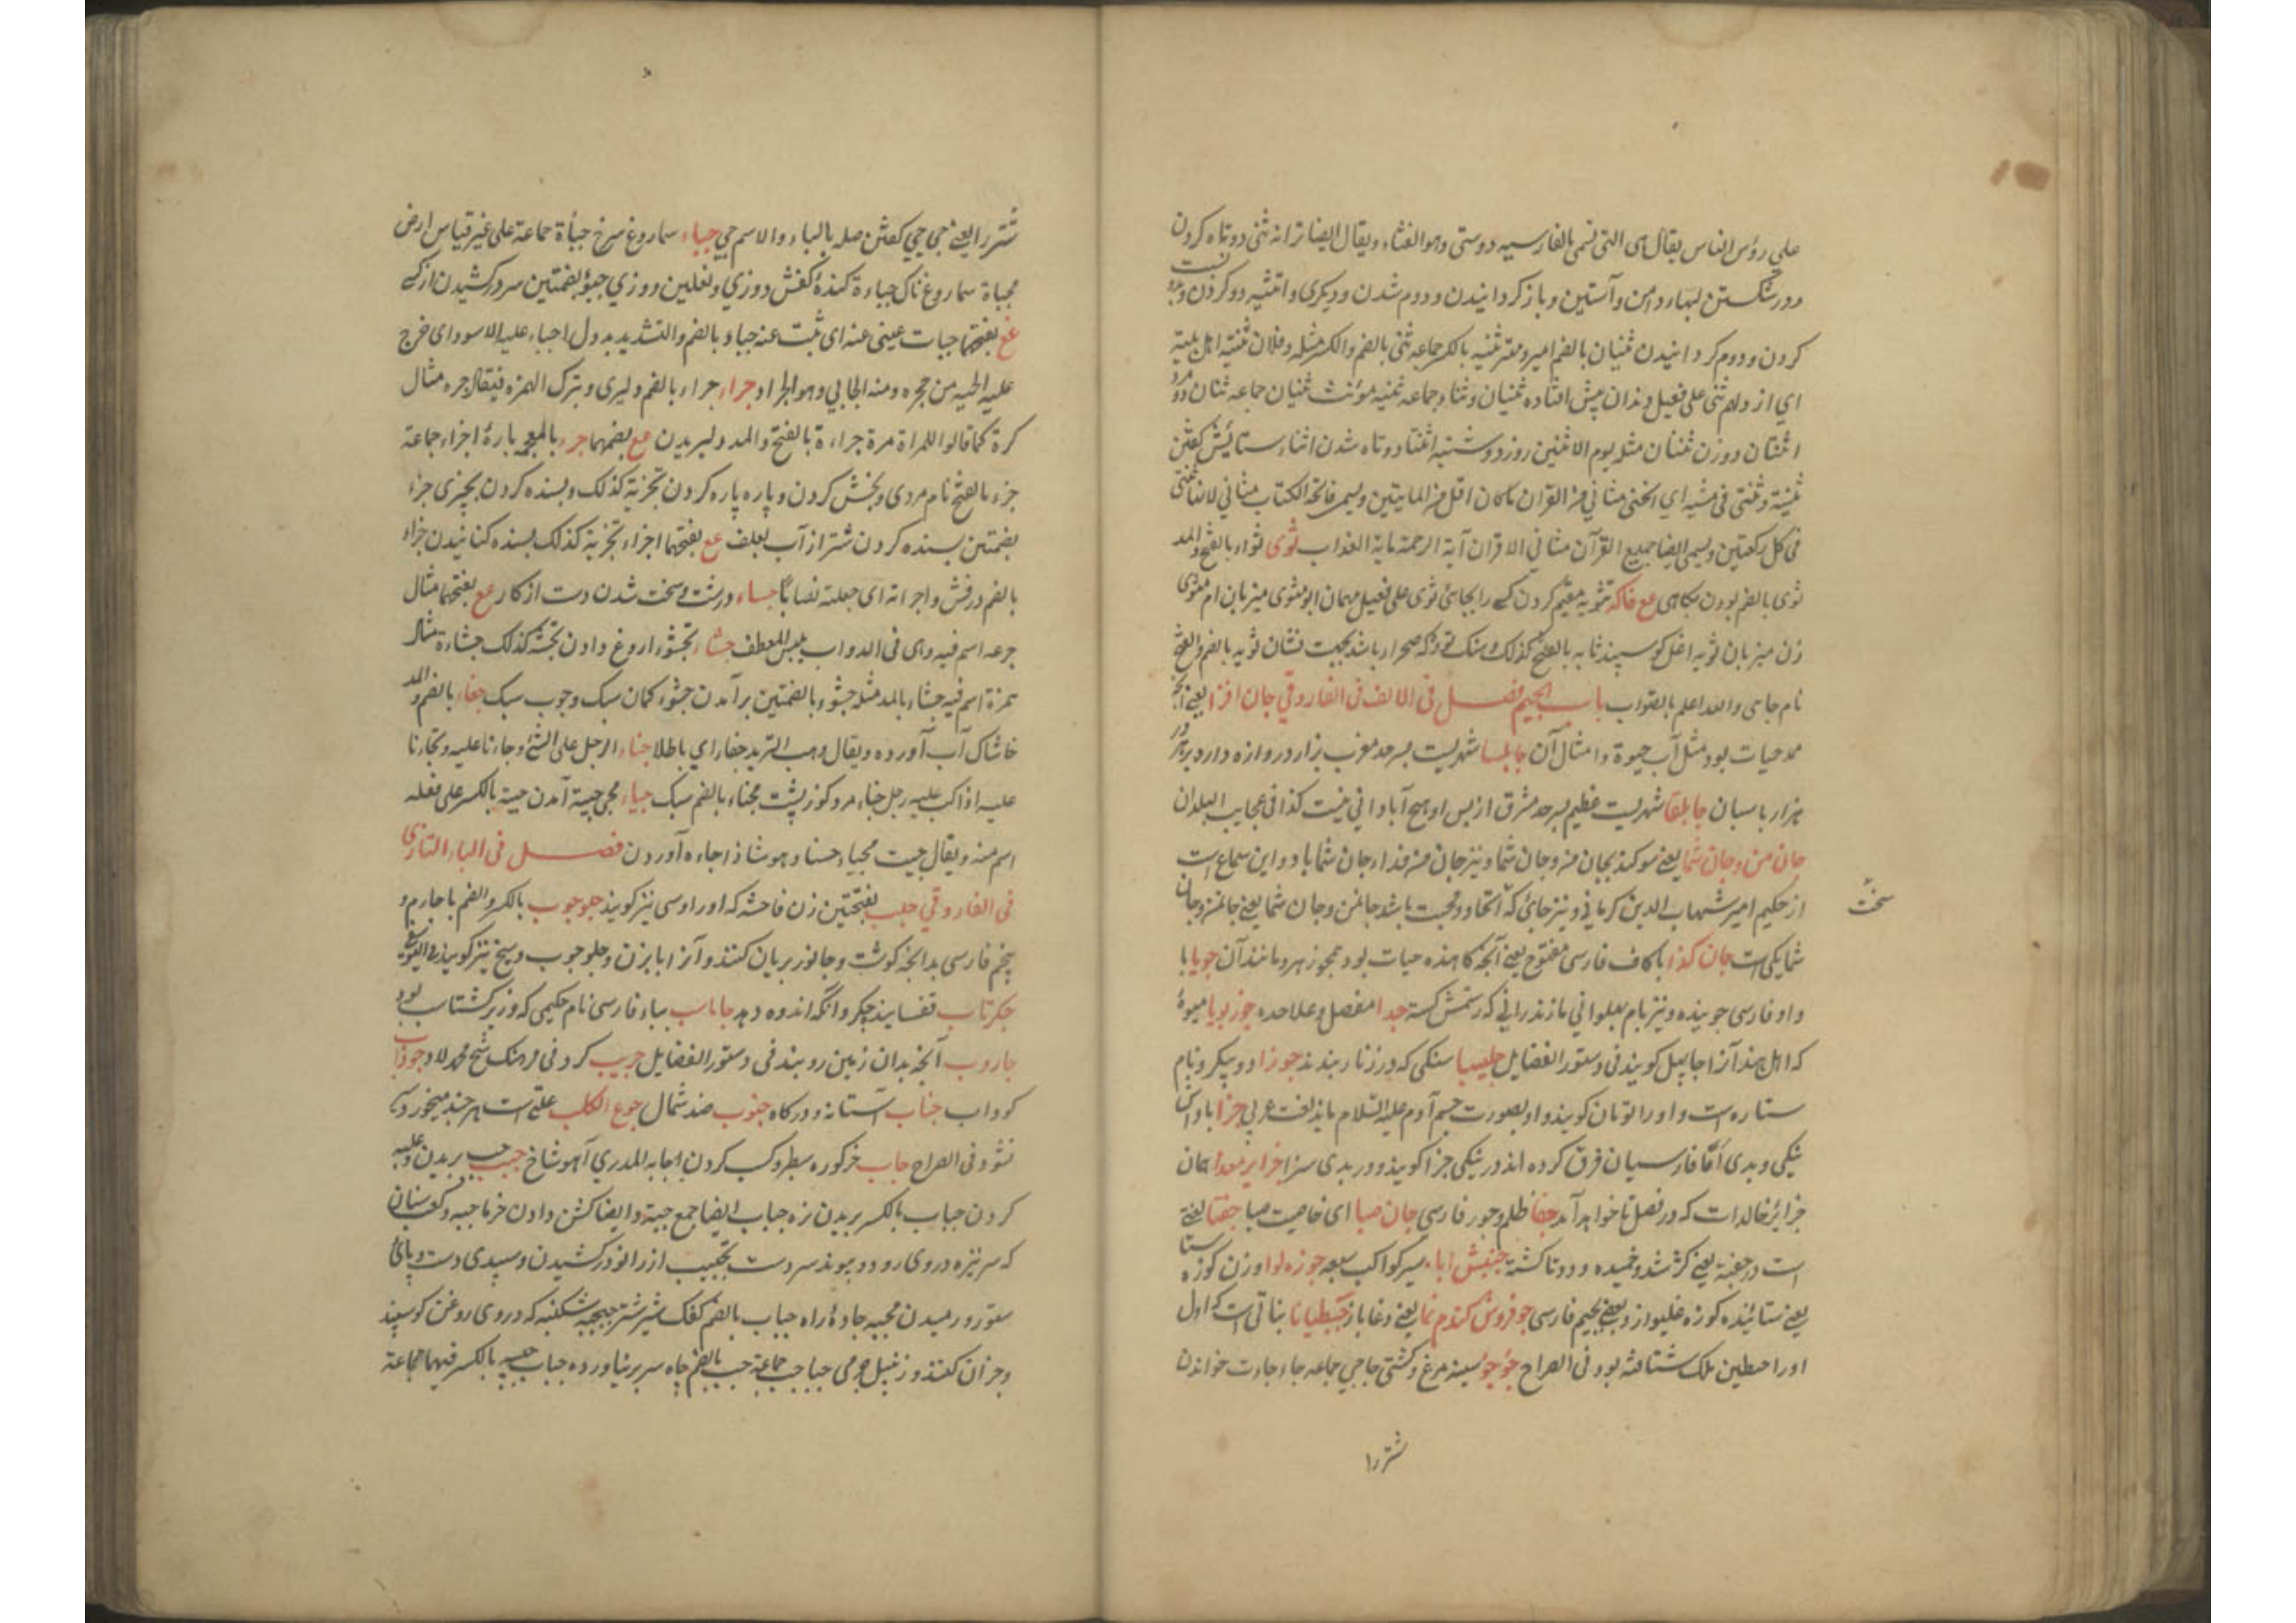 علی رؤس الناس یقال هی التی تسمی بالفارسیه دوستی وهو الغثاء ویقال ایضا ترانه ثنی دوتاه کردن
و در شکستن لبها و دامن و آستین و باز کردانیدن و دوم شدن و دیکری و اتثنیه دو کردن و
کردن و دوم کردانیدن ثنیان بالضم امیر و مهتر ثنیه بالکسر جماعه ثنی بالضم والکسر مثله و فلان ثنیة اهل بیته
ای ارذلهم ثنی علی فعیل دندان پیش افتاده ثنیان و ثناء جماعه ثنیه مؤنث ثنیان جماعه ثنان دو مرد
اثنتان دو زن ثنتان مثله یوم الاثنین روز دوشنبه اثنا دوتاه شدن اثناء ستایش کفتن
فی کل رکعتین ویسمی ایضا جمیع القرآن مثانی لاقران آیة الرحمة بآیة العذاب ثوی ثواء بالفتح والمد
ثوی بالضم بودن بجای مع فاکه تثویه مقیم کردن کسی را بجایی ثوی علی فعیل مهمان ابو مثوی میزبان ام مثوی
زن میزبان ثویه اغل کوسپند ثایه بالفتح کذلک و سنک توده که صحرا باشد بجهت نشان ثویه بالضم والفتح
نام جای والله اعلم بالصواب باب الجیم فصل فی الالف فی الفاروقی جان افزا یعنی آنچه
ممد حیات بود مثل آب حیوة و امثال آن جابلسا شهریست بسرحد مغرب هزار دروازه دارد بر هر در
هزار پاسبان جابلقا شهریست عظیم بسرحد مشرق از پس او هیچ آبادانی نیست کذا فی عجایب البلدان
جان من و جان شما یعنی سوکند بجان من و جان شما و نیز جان من فداء جان شما باد و این سماع است
سخت
از حکیم امیر شهاب الدین کرمانی و نیز جائی که اتحاد و محبت باشد جان من و جان شما یعنی جان من و جان
شما یکی است جان کذا با کاف فارسی مفتوح یعنی آنچه کاهنده حیات بود همچو زهر و مانند آن جویا با
واو فارسی جوینده و نیز نام پهلوانی مازندرانی که رستمش کشته جدا مفصل و علاحده جوز بویا میوهٔ
که اهل هند آنرا جایپهل کویند فی دستور الفضایل جلیسا سنکی که در زنار بندند جوزا دو پیکر و نام
ستاره است و او را توبان کویند و او بصورت جسم آدم علیه السلام باید لغت عربی جزا پاداش
نیکی و بدی اما فارسیان فرق کرده اند در نیکی جزا کویند و در بدی سزا جزایر سعدا همان
جزائر خالدات که در فصل تا خواهد آمد جفا ظلم و جور فارسی جان صبا ای خاصیت صبا جفتا لغتی
است در جفته یعنی کژ شد و خمیده و دوتا کشته جنبش ابا سیر کواکب سبعه جوزه لوا وزن کوزه
یعنی ستائیده کوزه غلیواز و بعضی بجیم فارسی جو فروش کندم نما یعنی دغا باز جنطیانا نباتی است که اول
او را جنطین ملک شناخته بود فی الصراح جؤجؤ سینه مرغ و کشتی جاجی جماعه جاء جاءت خواندن
شتر را
شتر را یعنی جی جی کفتن صله بالباء والاسم جی جباء سماروغ سرخ جبأة جماعة علی غیر قیاس ارض
مجباة سماروغ ناک جباءة کندهٔ کفش دوزی و نعلین دوزی جبؤ بضمتین سر در کشیدن از کسی
مع بفتحهما جبات عینی عنه ای نبت عنه جباء بالضم والتشدید بددل اجباء علیه الاسود ای خرج
علیه الحیه من جحره ومنه الجابی وهو الجراد جراء جراء بالضم دلیری و بترک الهمزه فیقال جره مثال
کرة کما قالوا للمراة مرة جراءة بالفتح والمد دلیریدن مع بضمهما جزء بالضم پارهٔ اجزاء جماعة
جزء بالفتح نام مردی و بخش کردن و پاره پاره کردن تجزیة کذلک و بسنده کردن بچیزی جزء
بضمتین بسنده کردن شتر از آب بعلف مع بفتحهما اجزاء تجزیة کذلک بسنده کنانیدن جزاء
بالضم درفش و اجزاته ای جعلت نصابا جساء درشت و سخت شدن دست از کار مع بفتحهما مثال
جرعه اسم فیه وهی فی الدواب یبس المعطف جشاء تجشؤ اروغ دادن تجشئه کذلک جشاءة مثال
همزة اسم فیه جشاء بالمد مثله جشوء بالضمتین برآمدن جشوء کمان سبک و چوب سبک جفاء بالضم والمد
خاشاک آب آورده ویقال ذهب الزبد جفاء ای باطلا جناء الرجل علی الشئ وجانا علیه وتجانا
علیه اذا اکب علیه رجل جناء مرد کوز پشت مجناء بالضم سبک جیاء مجی جیئة آمدن جیئة بالکسر علی فعله
اسم منه ویقال جیت مجیاء حسنا وهو شاذ اجاءه آوردن فصل فی الباء التازی
فی الفاروقی جلب بفتحتین زن فاحشه که او را روسی نیز کویند جلوجوب بالکسر والضم با جارم و
پنجم فارسی بدانچه کوشت و جانور بریان کنند و آنرا بابزن و جلوجوب و سیخ نیز کویند
جکرتاب تفسایند جکر و انکه اندوه دهد جاماسب بباء فارسی نام حکیمی که وزیر کشتاسب بود
جاروب آنچه بدان زمین روبند فی دستور الفضایل جریب کرد فی فرهنک شیخ محمد لاد جوذاب
کوداب جناب آستانه و درکاه جنوب ضد شمال جوع الکلب علتی است هر چند میخورد سیر
نشود فی الصراح جاب خر کوره سطبر و کسب کردن اجابة المدری آهو شاخ جبب جب بریدن و غلبه
کردن جباب بالکسر بریدن زه جباب ایضا جمع جبة و ایضا کشن دادن خرما جبه و کف سنان
که سر نیزه در وی رود و پیوند سر دست تجبیب از زانو در کشیدن و سپیدی دست و پای
ستور و رمیدن مجبه جادهٔ راه جباب بالضم کفک شیر شتر جبجبه شکنبه که در وی روغن کوسپند
وجزان کنند و زنبیل چرمی جباجب جماعة جب بالضم چاه سر بر نیاورده جباب جببه بالکسر فیهما جماعة